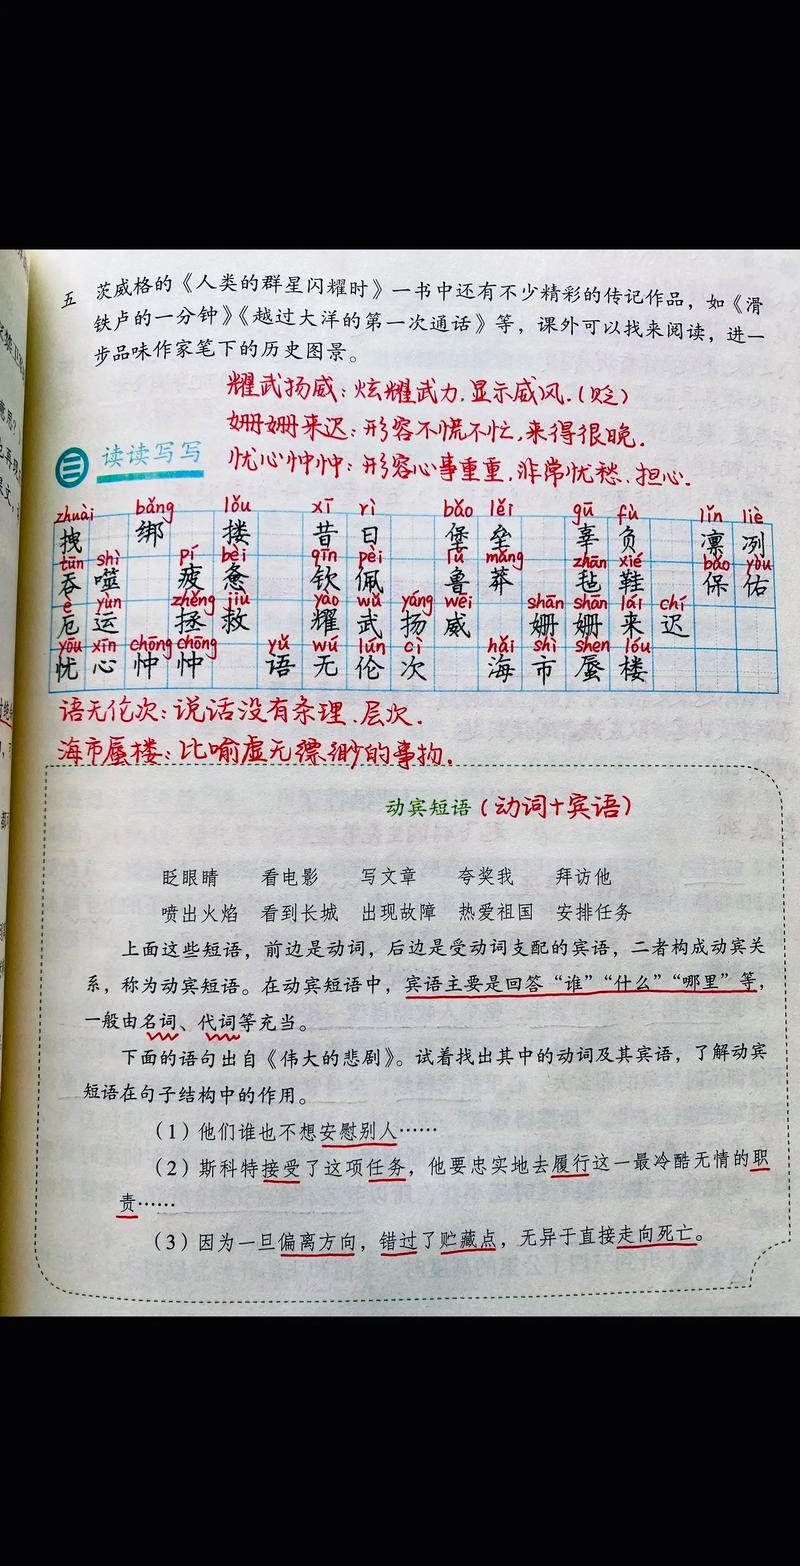 五 茨威格的《人类的群星闪耀时》一书中还有不少精彩的传记作品，如《滑
铁卢的一分钟》《越过大洋的第一次通话》等，课外可以找来阅读，进一
步品味作家笔下的历史图景。
耀武扬威：炫耀武力，显示威风。（贬）
姗姗来迟：形容不慌不忙，来得很晚。
三 读读写写
忧心忡忡：形容心事重重，非常忧愁、担心。
zhuài bǎng lǒu xī rì bǎo lěi gū fù lǐn liè
拽 绑 搂 昔日 堡垒 辜负 凛冽
tūn shì pí bèi qīn pèi lǔ mǎng zhān xié bǎo yòu
吞噬 疲惫 钦佩 鲁莽 毡鞋 保佑
è yùn zhěng jiù yào wǔ yáng wēi shān shān lái chí
厄运 拯救 耀武扬威 姗姗来迟
yōu xīn chōng chōng yǔ wú lún cì hǎi shì shèn lóu
忧心忡忡 语无伦次 海市蜃楼
语无伦次：说话没有条理、层次。
海市蜃楼：比喻虚无缥缈的事物。
动宾短语（动词+宾语）
眨眼睛 看电影 写文章 夸奖我 拜访他
喷出火焰 看到长城 出现故障 热爱祖国 安排任务
上面这些短语，前边是动词，后边是受动词支配的宾语，二者构成动宾关
系，称为动宾短语。在动宾短语中，宾语主要是回答“谁”“什么”“哪里”等，
一般由名词、代词等充当。
下面的语句出自《伟大的悲剧》。试着找出其中的动词及其宾语，了解动宾
短语在句子结构中的作用。
（1）他们谁也不想安慰别人……
（2）斯科特接受了这项任务，他要忠实地去履行这一最冷酷无情的职
责……
（3）因为一旦偏离方向，错过了贮藏点，无异于直接走向死亡。